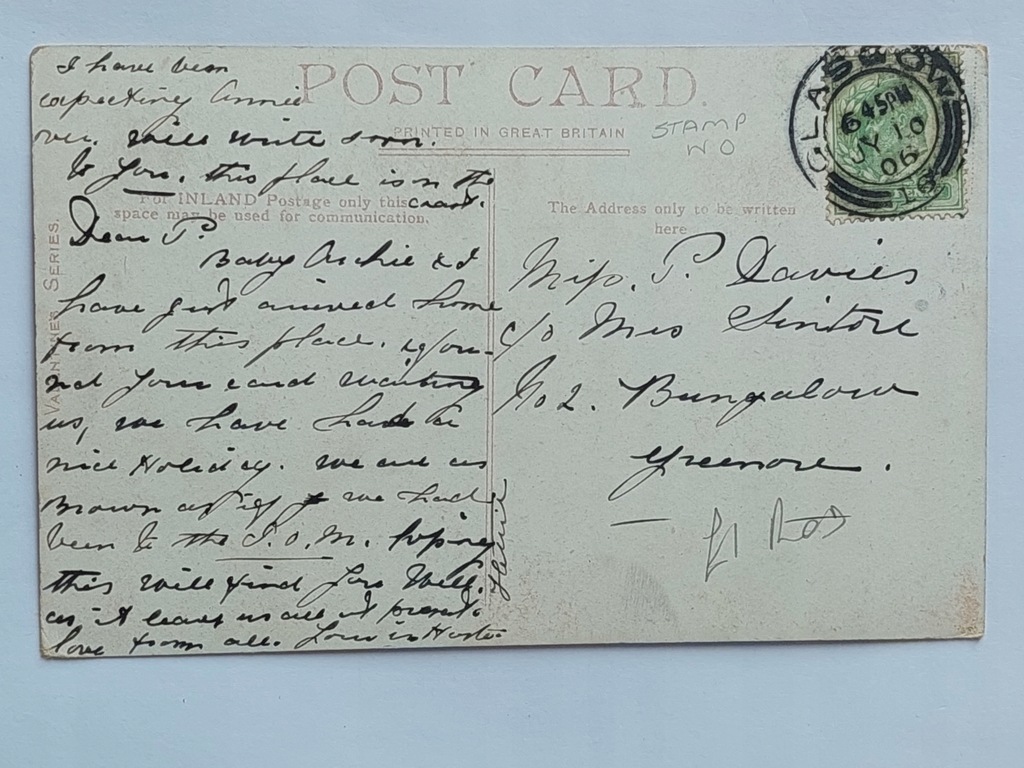 I have been
expecting Annie
over. will write soon.
to you. this place is on the
coast.
POST CARD.
PRINTED IN GREAT BRITAIN
STAMP
W O
For INLAND Postage only this
space may be used for communication.
The Address only to be written
here
VALENTINES SERIES.
GLASGOW
6 45PM
JY 10
06
Dear P.
Baby Archie & I
have just arrived home
from this place. & foun-
nd your card wanting
us, we have had a
nice Holiday. we are as
Brown as if we had
been to the I.O.M. hoping
this will find you Well.
as it leaves us all at present.
love from all. Yours in Haste
Miss. P. Davies
c/o Mrs Sintore
No 2. Bungalow
Greenore.